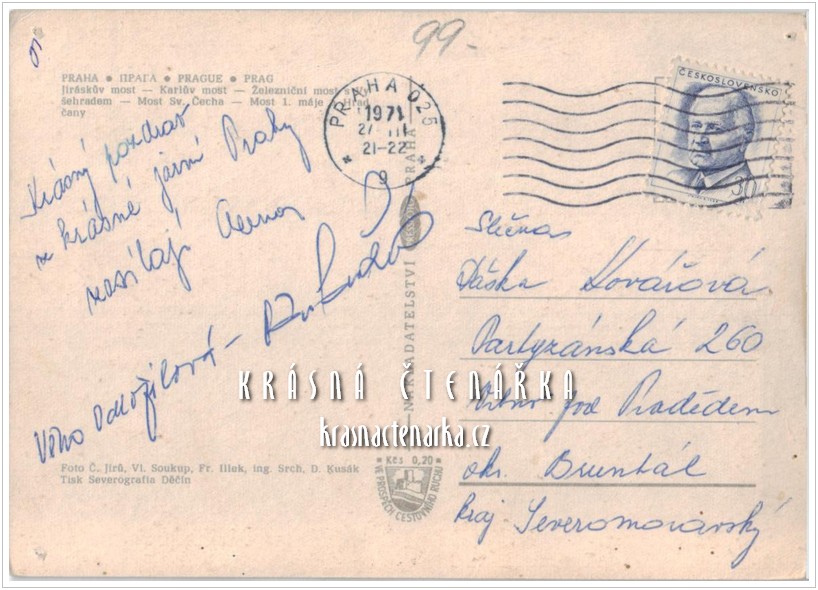 99.-
PRAHA ● ПРАГА ● PRAGUE ● PRAG
Jiráskův most — Karlův most — Železniční most
šehradem — Most Sv. Čecha — Most 1. máje Hrad
čany
PRAHA 025
1971
21-22
9
ČESKOSLOVENSKO
30
Krásný pozdrav
z krásné jarní Prahy
zasílají
Věra
Slečna
Kovářová
Partyzánská 260
Vrbno pod Pradědem
okr. Bruntál
kraj Severomoravský
NAKLADATELSTVÍ PRAHA
KRÁSNÁ ČTENÁŘKA
krasnactenarka.cz
Foto Č. Jirů, Vl. Soukup, Fr. Illek, ing. Srch, D. Kusák
Tisk Severografia Děčín
Kčs 0,20
VE PROSPĚCH CESTOVNÍHO RUCHU